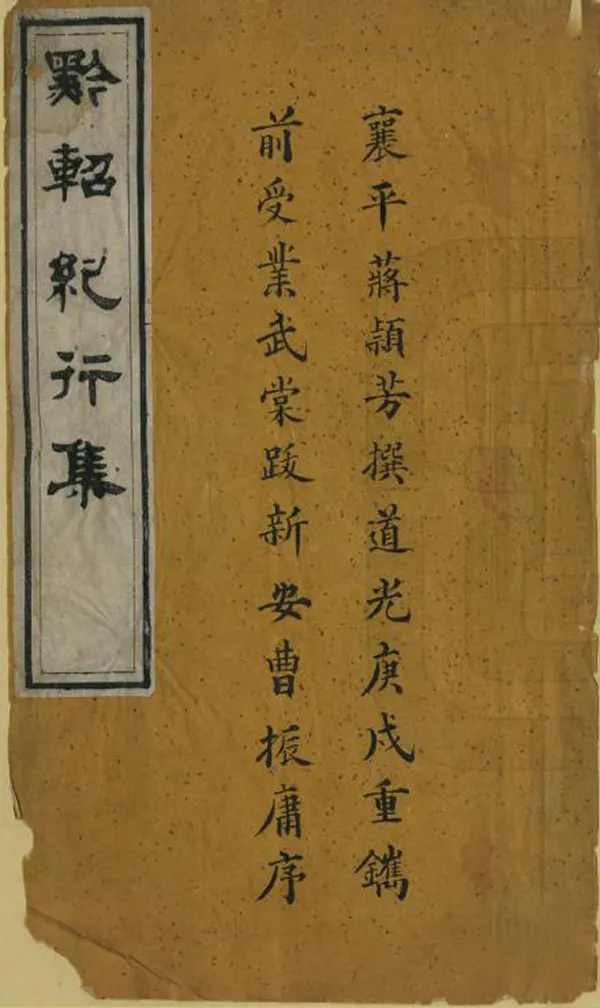 襄平蔣頴芳撰道光庚戌重鐫
前受業武棠跋新安曹振庸序
黔軺紀行集